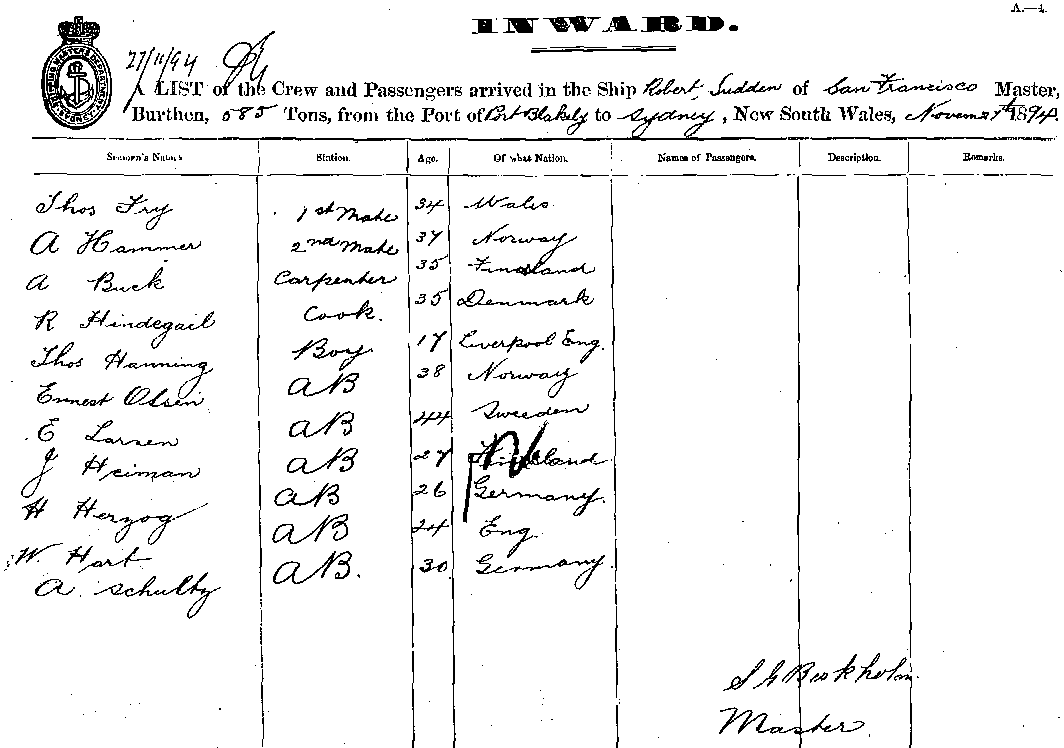 A.—4.
INWARD.
27/11/94
A LIST of the Crew and Passengers arrived in the Ship Robert Sudden of San Francisco Master,
Burthen, 585 Tons, from the Port of Port Blakely to Sydney, New South Wales, Novem 27th 1894.
Station. Age. Of what Nation. Names of Passengers. Description. Remarks.
Thos Fry 1st Mate 34 Wales
A Hammer 2nd Mate 37 Norway
A Buck Carpenter 35 Findland
R Hindegail Cook. 35 Denmark
Thos Hanning Boy 17 Liverpool Eng.
Ernest Olsen AB 38 Norway
E Larsen AB 44 Sweeden
J Heiman AB 27 Findland
H Herzog AB 26 Germany.
W. Hart AB 24 Eng.
A. Schultz AB. 30 Germany.
Master